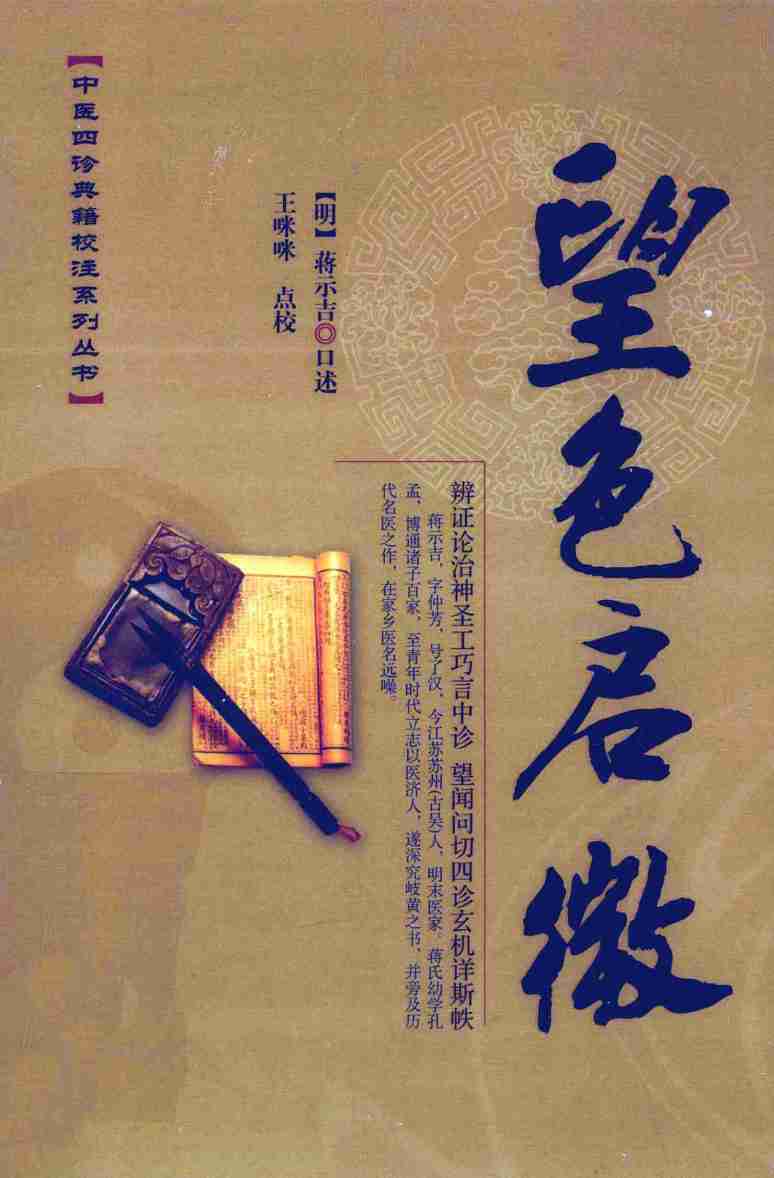 望色启微
【明】蒋示吉◎口述
王咪咪 点校
【中医四诊典籍校注系列丛书】
辨证论治神圣工巧言中诊 望闻问切四诊玄机详斯帙
蒋示吉，字仲芳，号了汉，今江苏苏州(古吴)人，明末医家。蒋氏幼学孔
孟，博通诸子百家，至青年时代立志以医济人，遂深究岐黄之书，并旁及历
代名医之作，在家乡医名远噪。